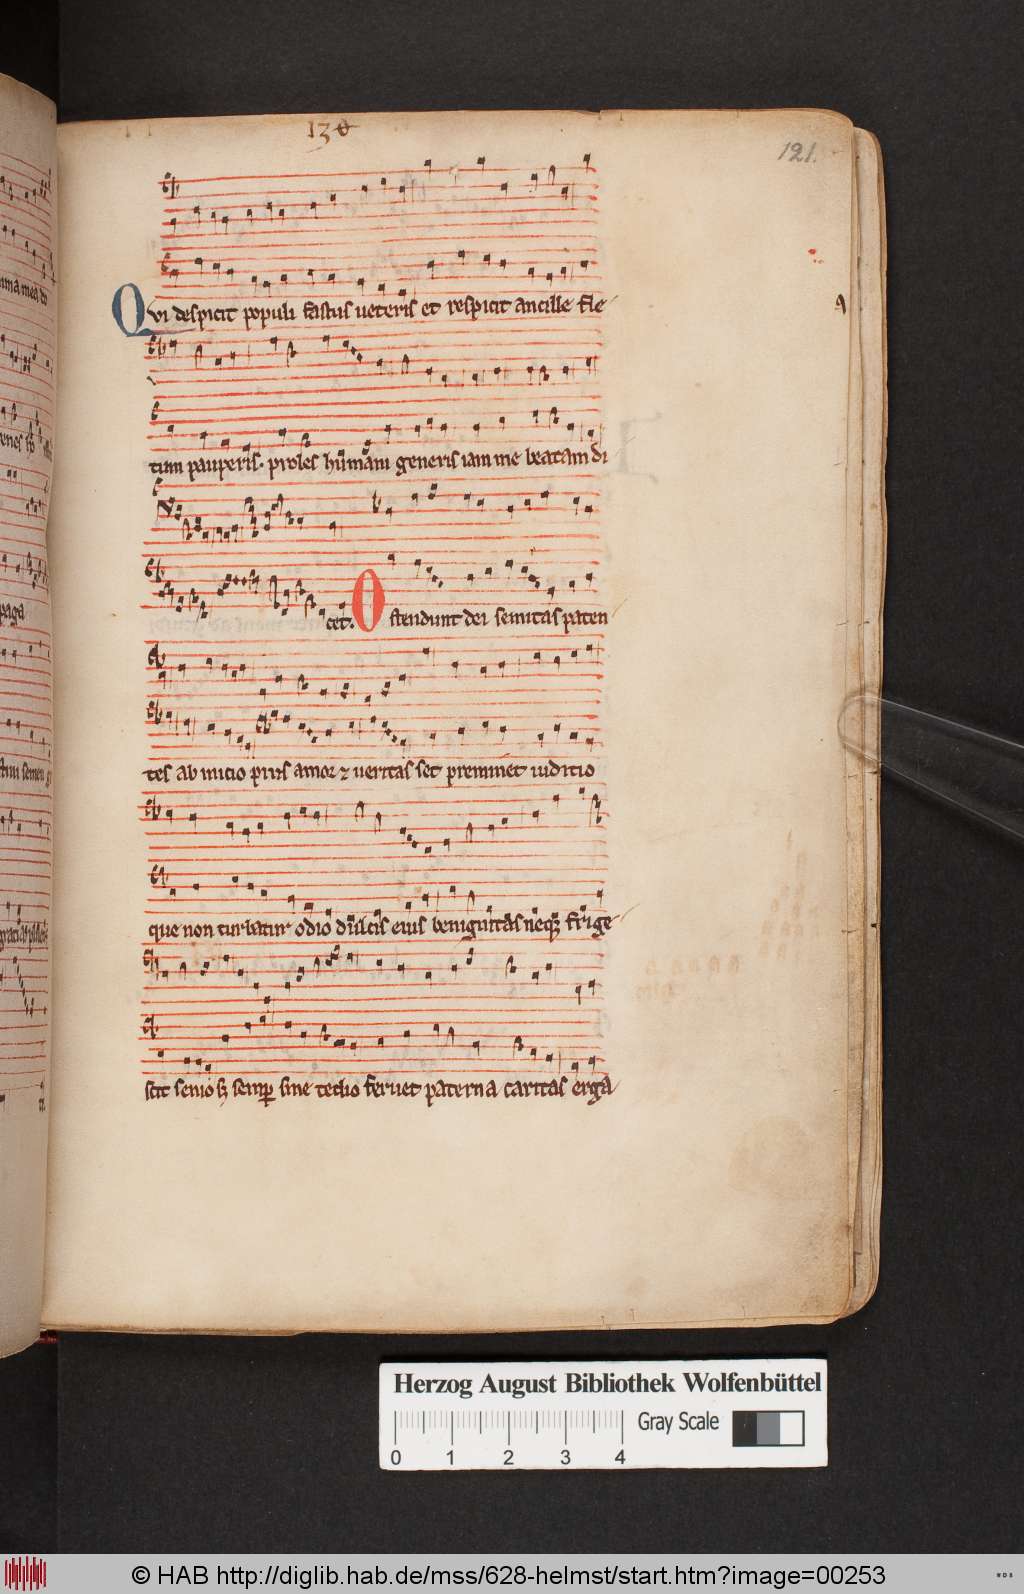 130
121.
Qvi despicit populi fastus ueteris et respicit ancille fle
tum pauperis. proles humani generis iam me beatam di
cet. Ostendunt dei semitas paten
tes ab inicio prius amor ⁊ ueritas set preminet iuditio
que non turbatur odio dulcis eius benignitas neq frige
scit senio sꝫ semp sine tedio feruet paterna caritas erga
paga
Herzog August Bibliothek Wolfenbüttel
Gray Scale
0 1 2 3 4
© HAB http://diglib.hab.de/mss/628-helmst/start.htm?image=00253